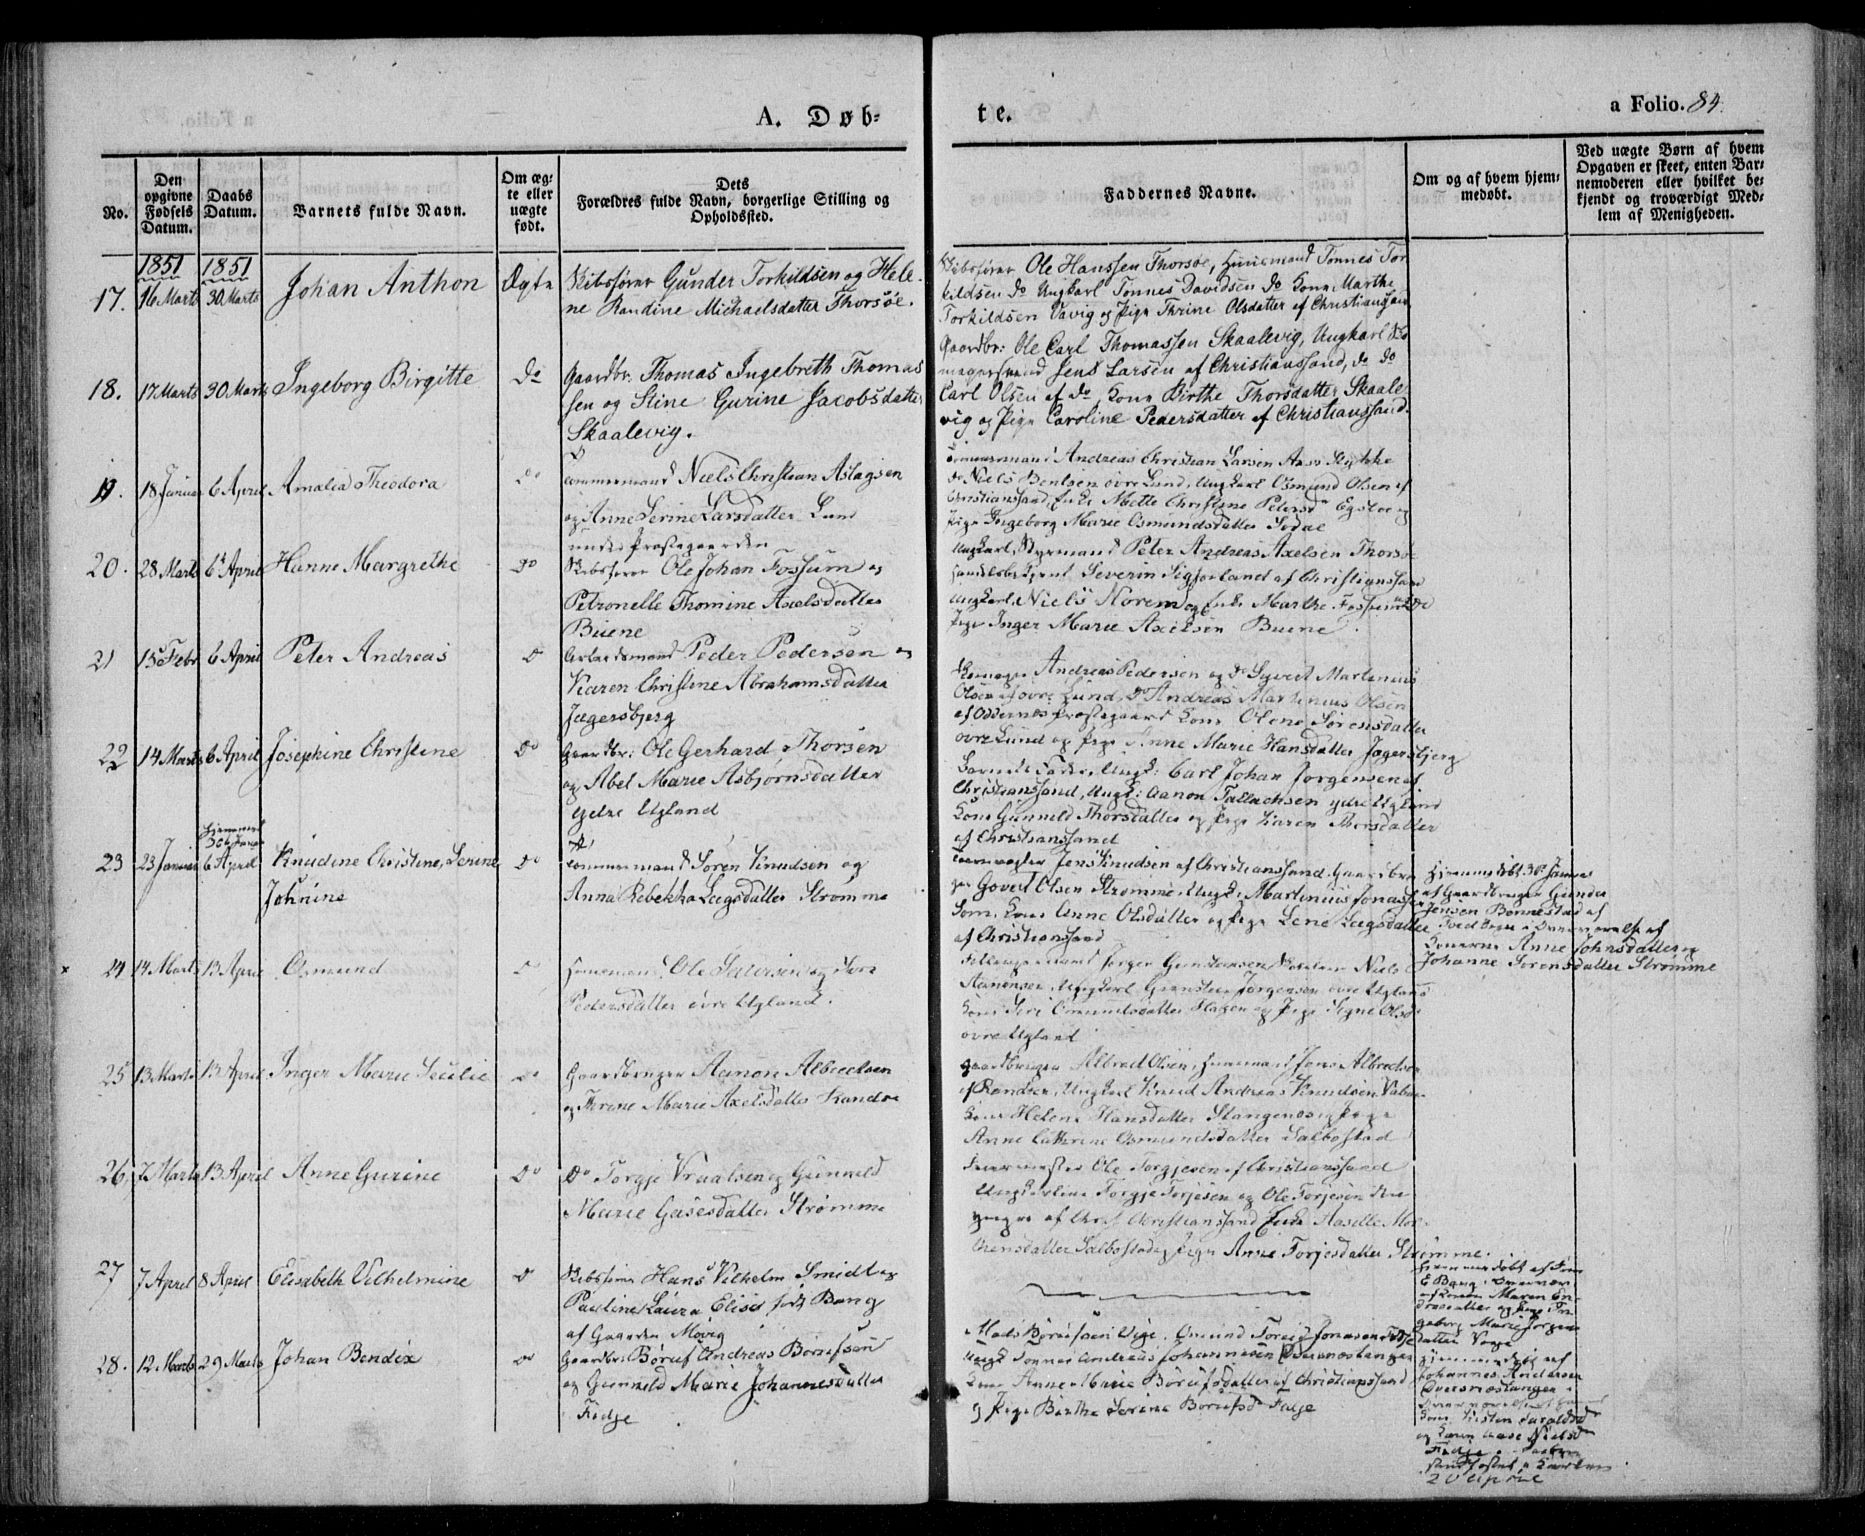 A. Døb-
te.
a Folio. 84.
No.
Den opgivne Fødsels Datum.
Daabs Datum.
Barnets fulde Navn.
Om ægte eller uægte født.
Dets
Forældres fulde Navn, borgerlige Stilling og
Opholdssted.
Faddernes Navne.
Om og af hvem hjem-
medøbt.
Ved uægte Børn af hvem
Opgaven er skeet, enten Bar-
nemoderen eller hvilket be-
kjendt og troværdigt Med-
lem af Menigheden.
1851 1851
17. 16 Marts 30 Marts Johan Anthon Ægte
Skibsfører Gunder Torkildsen og Hele-
ne Randine Michaelsdatter Thorsøe.
Skibsfører Ole Hanssen Thorsøe, Huusmand Tønnes Tor
kildsen do Ungkarl Tønnes Davidsen do Kone Marthe
Torkildsen Vavig og Pige Thrine Olsdatter af Christianssand
18. 17 Marts 30 Marts Ingeborg Birgitte Do
Gaardbr. Thomas Ingebreth Thomas
sen og Stine Gurine Jacobsdatter
Skaalevig.
Gaardbr: Ole Carl Thomassen Skaalevig, Ungkarl Sko
magersvend Jens Larsen af Christianssand, do do
Carl Olsen af do, Kone Birthe Thorsdatter Skaale
vig og Pige Caroline Pedersdatter af Christianssand.
19. 18 Januar 6 April Amalia Theodora Do
Tømmermand Niels Christian Aslagsen
og Anne Serine Larsdatter Lund
under Præstegaarden
Tømmermand Andreas Christian Larsen
do Niels Bentsen øvre Lund, Ungkarl Osmund Olsen af
Christianssand, Enke Mette Christine Petersd Egsløe og
Pige Ingeborg Marie Osmundsdatter Sodal
20. 28 Marts 6 April Hanne Margrethe Do
Skibsfører Ole Johan Fossum og
Petronelle Thomine Axelsdatter
Buene
Ungkarl, Styrmand Peter Andreas Axelsen Thorsøe
Handelsbetjent Severin af Christianssand
Ungkarl Niels Norem og Enke Marthe Fossum
Pige Inger Marie Axelsen Buene.
21 15 Febr 6 April Peter Andreas Do
Arbeidsmand Peder Pedersen og
Karen Christine Abrahamsdatter
Jægersbjerg
Andreas Pedersen og do Syvert Martinius
Olsen af øvre Lund, do Andreas Martinius Olsen
af Oddernes Præstegaard Kone Olene Sørensdatter
øvre Lund og Pige Anne Marie Hansdatter Jægersbjerg
22 14 Marts 6 April Josephine Christine Do
Gaardbr: Ole Gerhard Thorsen
og Abel Marie Asbjørnsdatter
ydre Ugland
Barnets Fader, Ungk: Carl Johan Jørgensen af
Christianssand, Ungk: Aanon Tallachsen ydre Ugland
Kone Gunnild Thorsdatter og Pige Karen
af Christianssand
23 23 Januar 6 April Knudine Christine, Serine Do
Johnine
Tømmermand Søren Knudsen og
Anna Rebekka Legsdatter Strømme
Jens Knudsen af Christianssand, Gaardbru
ger Govert Olsen Strømme, Ungk: Martinius Jonassen
Som, Kone Anne Olsdatter og Pige Lene Legsdatter
af Christianssand
Hjemmedøbt 30 Januar
af Gaardbruger Gunder
Jensen Bonnestad af
Tved Sogn i Overværelse af
Konerne Anne Johnsdatter og
Johanne Sørensdatter Strømme
24 14 Marts 13 April Osmund Do
Huusmand Ole Salvesen og Siri
Pedersdatter øvre Ugland.
Jørgen Gunstensen, Niels
Aanonsen, Ungkarl Gunsten Jørgensen øvre Ugland
Kone Siri Osmundsdatter Hagen og Pige Signe Olsd
øvre Ugland
25 13 Marts 13 April Inger Marie Secilie Do
Gaardbruger Aanon Albrectsen
og Thrine Marie Axelsdatter Randøe
Gaardbruger Albrect Olsen, Huusmand Jens Albrectsen
af Randøe, Ungkarl Knud Andreas Knudsen
Kone Helene Hansdatter Stangenes og Pige
Anne Cathrine Osmundsdatter Salbostad
26. 7 Marts 13 April Anne Gurine Do
Do Torgje Vraalsen og Gunnild
Marie Gasesdatter Strømme
Ole Torgjesen af Christianssand
Ungkarlene Torgje Torjesen og Ole Torjesen
af Christianssand Enke Aaselle Mor-
tensdatter Salbostad og Pige Anne Torjesdatter Strømme.
27 7 April 8 April Elisabeth Vilhelmine Do
Skibsfører Hans Vilhelm Smidt og
Pauline Laura Elise født Bang
af Gaarden Møvig
Hjemmedøbt af
E Bang i Overvær
af Konen Maren En-
dresdatter og Pige In-
geborg Marie Jørgens
datter Voge
28. 12 Marts 29 Marts Johan Bendix Do
Gaardbr: Børuf Andreas Børufsen
og Gunnild Marie Johannesdatter
Fidje
Mads Børufsen Vige, Jonasen Fidje
Ungk Tønnes Andreas Johannesen Dvergsnestangen
Kone Anne Marie Børufsdatter af Christianssand
og Pige Birthe Serene Børufsd Fidje
Hjemmedøbt af
Johannes Andersen
Dversnestangen i
Overværelse af
Kone Kirsten Taraldsd
og Karen Aase Nielsd
Fidje
20 April